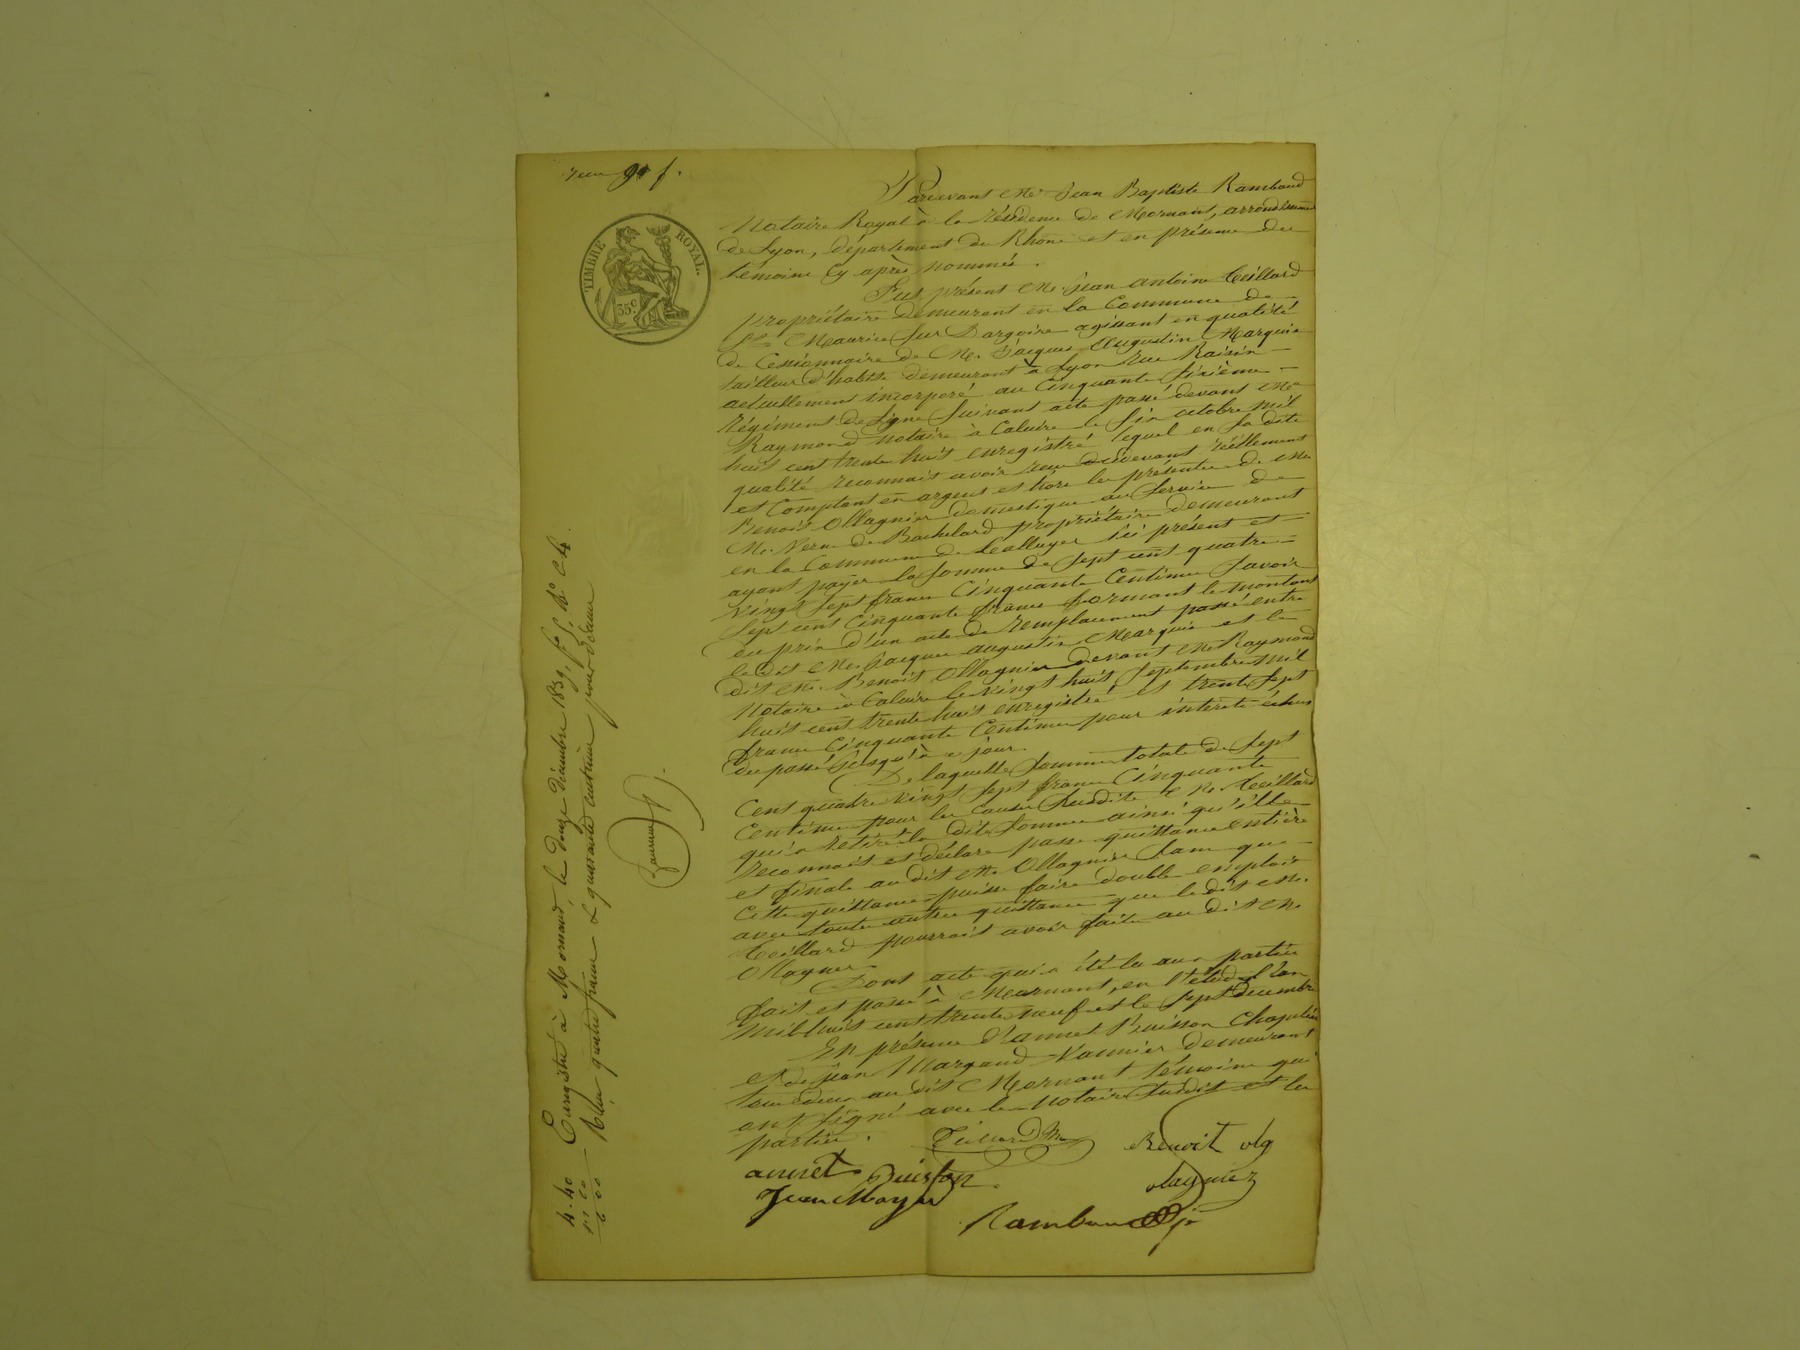 TIMBRE ROYAL.
35.c
Pardevant Me Jean Baptiste Rambaud
Notaire Royal à la résidence de Mornant, arrondissement
de Lyon, département du Rhône et en présence des
témoins Cy après nommés.
Fut présent Mr. Jean Antoine Teillard
propriétaire demeurant en la Commune de
St. Maurice Sur Dargoire agissant en qualité
de Cessionnaire de Mr. Jacques Augustin Marquis
tailleur d'habits demeurant à Lyon rue Raisin
actuellement incorporé au Cinquante Sixième
régiment de ligne Suivant acte passé devant Me
Raymond Notaire à Caluire le Six octobre mil
huit cent trente huit enregistré lequel en sa dite
qualité reconnait avoir reçu réellement
et Comptant en argent et hors la présence de Me
Benoit Ollagnier domestique au Service de
Mr. Verne de Bachelard propriétaire demeurant
en la Commune de ici présent et
ayant payer la Somme de Sept cent quatre
vingt Sept francs Cinquante Centimes Savoir
Sept cent Cinquante francs formant le montant
du prix d'un acte de remplacement passé entre
le dit Mr. Jacques Augustin Marquis et le
dit Mr. Benoit Ollagnier devant Me Raymond
Notaire à Caluire le vingt huit Septembre mil
huit cent trente huit enregistré et trente Sept
francs Cinquante Centimes pour intérêts échus
du passé jusqu'à ce jour.
De laquelle Somme totale de Sept
Cent quatre vingt Sept francs Cinquante
Centimes pour les Causes Susdites Mr. Teillard
qui a retiré la dite Somme ainsi qu'il le
reconnait et déclare passe quittance entière
et finale au dit Mr. Ollagnier Sans que
Cette quittance puisse faire double emploi
avec toute autre quittance que le dit Mr.
Teillard pourrait avoir faite au dit Mr.
Ollagnier
Dont acte qui a été lu aux parties
fait et passé à Mornant, en l'étude l'an
Mil huit cent trente neuf et le Sept décembre
En présence d'Annet Buisson Chapelier
et de Jean Margand Vannier demeurant
tous deux au dit Mornant témoins qui
ont Signé avec le Notaire Susdit et les
parties.
Benoit olg
annet Buisson
olagniez
Jean
Rambaud
Enregistré à Mornant, le douze décembre 1839, fo
Reçu quatre francs & quarante centimes pour
4.40